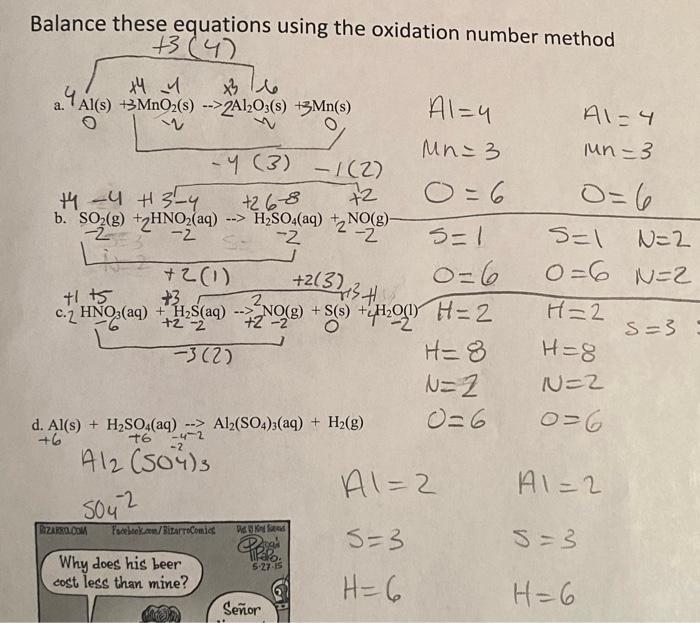 Balance these equations using the oxidation number method
+3(4)
+4 -4 +3 -6
a. 4 Al(s) + 3MnO₂(s) --> 2Al₂O₃(s) + 3Mn(s)
0 -2 -2 0
-4 (3)
Al=4 Al=4
Mn=3 Mn=3
O=6 O=6
-1(2)
+4 -4 +1 +3 -4 +2 6 -8 +2
b. SO₂(g) + 2HNO₂(aq) --> H₂SO₄(aq) + 2NO(g)
-2 -2 -2 -2
+2(1)
S=1 S=1 N=2
O=6 O=6 N=2
H=2 H=2
+2(3)
+1 +5 +3
c. 2 HNO₃(aq) + H₂S(aq) --> 2NO(g) + S(s) + 4H₂O(l)
-6 +2 -2 +2 -2 0 -2
-3(2)
S=3
H=8 H=8
N=2 N=2
O=6 O=6
d. Al(s) + H₂SO₄(aq) --> Al₂(SO₄)₃(aq) + H₂(g)
+6 +6 -4 -2
-2
Al₂(SO4)₃
SO4⁻²
Al=2 Al=2
S=3 S=3
H=6 H=6
BIZARRO.COM Facebook.com/BizarroComics
5-27-15
Why does his beer
cost less than mine?
Señor